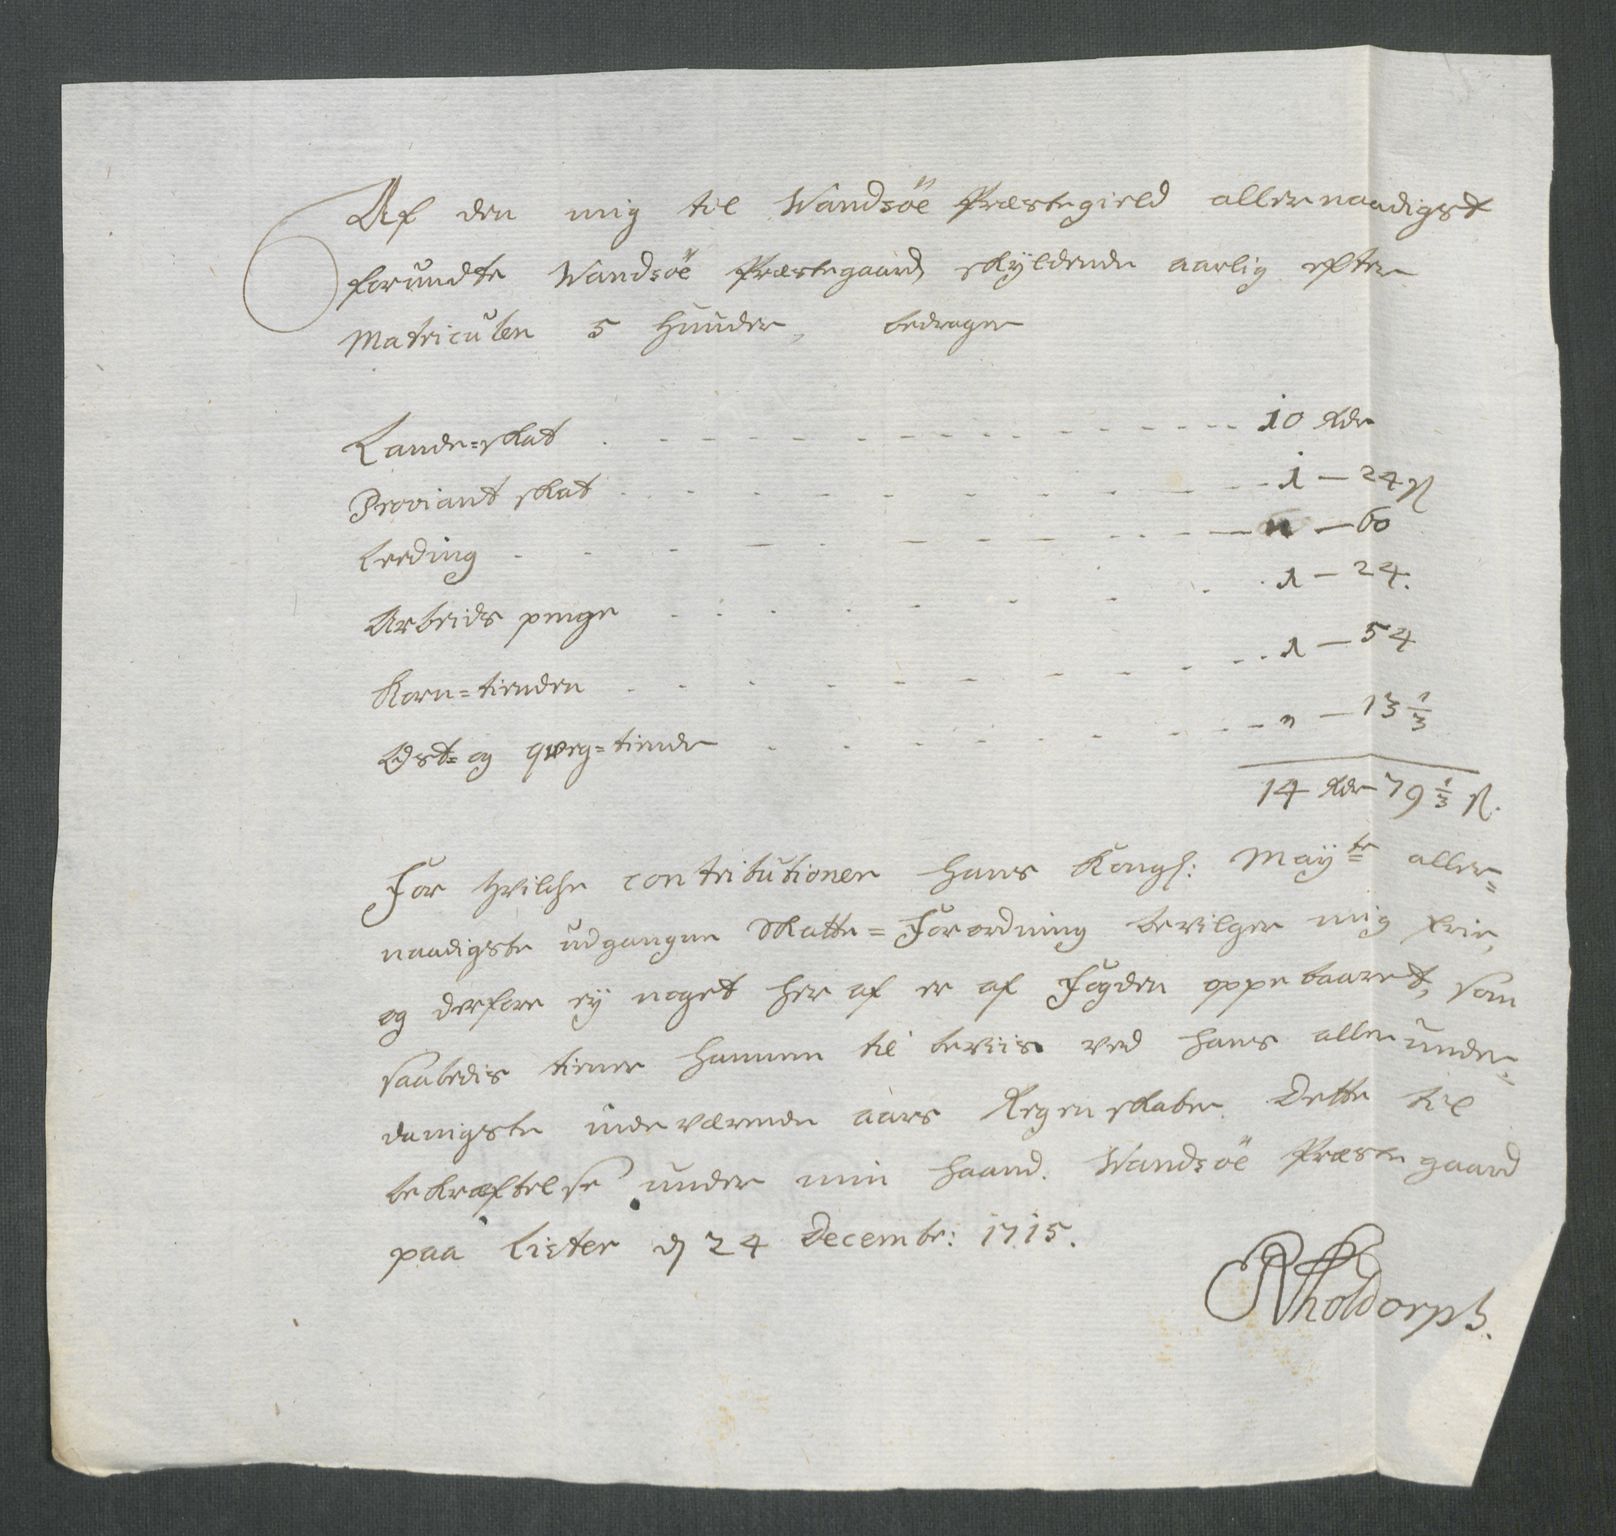 Af den mig til Wandsöe Præstegield allernaadigst
forundte Wandsöe Præstegaard, skyldende aarlig efter
Matriculen 5 huuder, bedrager
Lande=skat - - - 10 Rdr
Proviant skat - - - 1 — 24 ß
Leeding - - - " — 60
Arbeids penge - - - 1 — 24.
Korn=tienden - - - 1 — 54
Ost= og qveg=tiende - - - " — 13 1/3
14 Rdr 79 1/3 ß.
For hvilche contributioner hans Kongl: Mayᵗᵉ aller=
naadigste udgangne Skatte=Forordning bevilger mig frie,
og derfore ey noget her af er af Fogden oppebaaret, som
saaledis tiener hannem til beviis ved hans allerunder=
danigste inde værende aars Regenskaber. Dette til
bekræftelse under min haand. Wandsöe Præstegaard
paa Lister d 24 Decembr: 1715.
Holdorph.